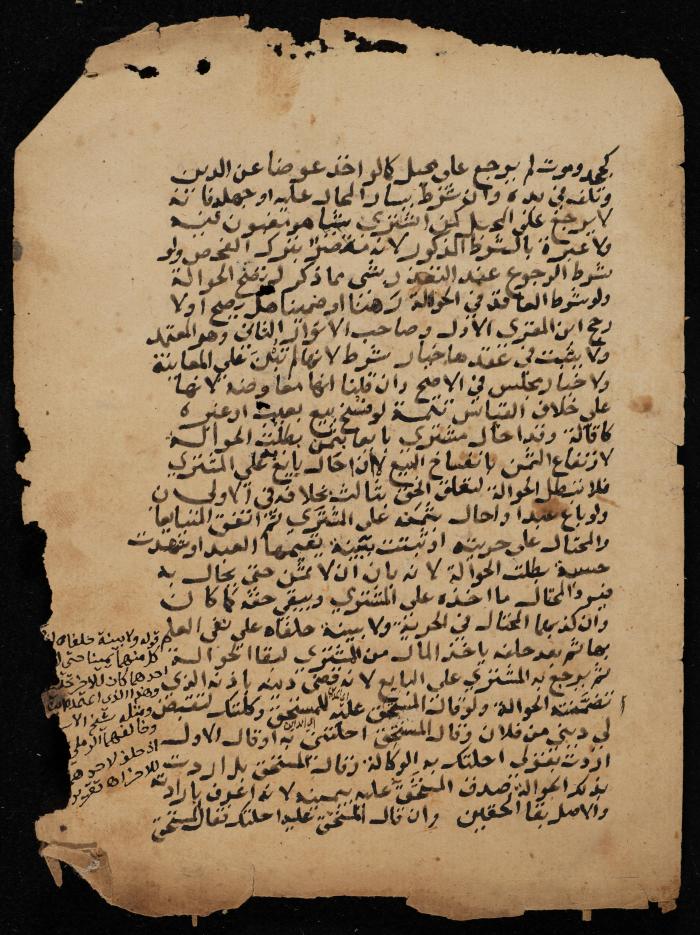 كجحد وموت لم يرجع على محيل كما لو اخذ عوضا عن الدين
وتلف في يده وان شرط يسار المحال عليه او جهله فانه
لا يرجع على المحيل كمن اشترى شيئا هو مغبون فيه
ولا عبرة بالشرط المذكور لانه مقصر بترك الفحص ولو
شرط الرجوع عند التعذر بشى مما ذكر لم تصح الحوالة
ولو شرط العاقد في الحوالة رهنا او ضمينا هل يصح او لا
رجح ابن المقري الاول وصاحب الانوار الثاني وهو المعتمد
ولا يثبت في عقدها خيار شرط لانها لم تبن على المعاينة
ولا خيار مجلس في الاصح وان قلنا انها معاوضة لانها
على خلاف القياس تتمة لو فسخ بيع بعيب او غيره
كاقالة وقد احال مشتري بايعا بثمن بطلت الحوالة
لارتفاع الثمن بانفساخ البيع لا ان احال بايع على المشتري
فلا تبطل الحوالة لتعلق الحق بثالث بخلافه في الاولى
ولو باع عبدا واحال بثمنه على المشتري ثم اتفق المتبايعا
والمحتال على حريته او ثبتت ببينة يقيمها العبد او شهدت
حسبة بطلت الحوالة لانه بان ان لا ثمن حتى يحال به
فيرد المحتال ما اخذه على المشتري ويبقى حقه كما كان
وان كذبهما المحتال في الحرية ولا بينة حلفاه على نفي العلم
بها ثم بعد حلفه ياخذ المال من المشتري لبقا الحوالة
ثم يرجع به المشتري على البايع لانه قضى دينه باذنه الذي
تضمنته الحوالة ولو قال المستحق عليه للمستحق وكلتك لتقبض
لي ديني من فلان وقال المستحق احلتني به او قال الاول
اردت بقولي احلتك به الوكالة وقال المستحق بل اردت
بذلك الحوالة صدق المستحق عليه بيمينه لانه اعرف بارادته
والاصل بقا الحقين وان قال المستحق عليه احلتك فقال المستحق
قوله ولا بينة حلفاه
كل منهما يمينا حتى
احدهما كان للاخر
وهذا الذي اعتمده
ومثله شيخ
وخالفهما الرملي